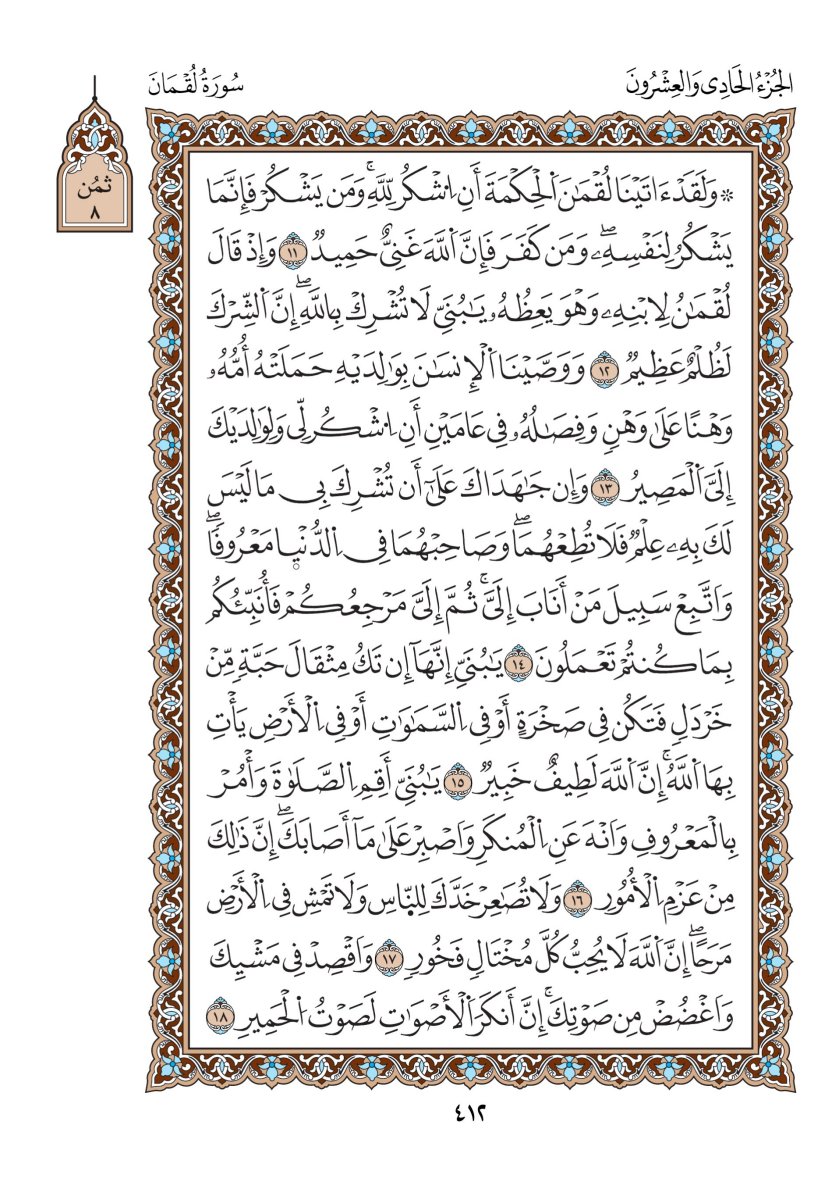 الجُزْءُ الحَادِى وَالعِشْرُونَ
سُورَةُ لُقْمَانَ
ثمُن
٨
۞ وَلَقَدَ ءَاتَيْنَا لُقْمَٰنَ اَ۬لْحِكْمَةَ أَنِ اِ۟شْكُرْ لِلهِۖ وَمَن يَشْكُرْ فَإِنَّمَا
يَشْكُرُ لِنَفْسِهِۦۖ وَمَن كَفَرَ فَإِنَّ اَ۬للَّهَ غَنِيٌّ حَمِيدٞ ١١ وَإِذْ قَالَ
لُقْمَٰنُ لِابْنِهِۦ وَهْوَ يَعِظُهُۥ يَٰبُنَيِّ لَا تُشْرِكْ بِاللَّهِۖ إِنَّ اَ۬لشِّرْكَ
لَظُلْمٌ عَظِيمٞ ١٢ وَوَصَّيْنَا اَ۬لْإِنسَٰنَ بِوَٰلِدَيْهِ حَمَلَتْهُ أُمُّهُۥ
وَهْناً عَلَىٰ وَهْنٖ وَفِصَٰلُهُۥ فِي عَامَيْنِ أَنِ اِ۟شْكُرْ لِي وَلِوَٰلِدَيْكَ
إِلَيَّ اَ۬لْمَصِيرُ ١٣ وَإِن جَٰهَدَاكَ عَلَىٰٓ أَن تُشْرِكَ بِي مَا لَيْسَ
لَكَ بِهِۦ عِلْمٞ فَلَا تُطِعْهُمَاۖ وَصَاحِبْهُمَا فِي اِ۬لدُّنْيا مَعْرُوفاٗۖ
وَاتَّبِعْ سَبِيلَ مَنْ أَنَابَ إِلَيَّۚ ثُمَّ إِلَيَّ مَرْجِعُكُمْ فَأُنَبِّئُكُم
بِمَا كُنتُمْ تَعْمَلُونَ ١٤ يَٰبُنَيِّ إِنَّهَآ إِن تَكُ مِثْقَالَ حَبَّةٖ مِّنْ
خَرْدَلٖ فَتَكُن فِي صَخْرَةٍ أَوْ فِي اِ۬لسَّمَٰوَٰتِ أَوْ فِي اِ۬لْأَرْضِ يَأْتِ
بِهَا اَ۬للَّهُۚ إِنَّ اَ۬للَّهَ لَطِيفٌ خَبِيرٞ ١٥ يَٰبُنَيِّ أَقِمِ اِ۬لصَّلَوٰةَ وَأْمُرْ
بِالْمَعْرُوفِ وَانْهَ عَنِ اِ۬لْمُنكَرِ وَاصْبِرْ عَلَىٰ مَآ أَصَابَكَۖ إِنَّ ذَٰلِكَ
مِنْ عَزْمِ اِ۬لْأُمُورِ ١٦ وَلَا تُصَٰعِرْ خَدَّكَ لِلنَّاسِ وَلَا تَمْشِ فِي اِ۬لْأَرْضِ
مَرَحاًۖ إِنَّ اَ۬للَّهَ لَا يُحِبُّ كُلَّ مُخْتَالٖ فَخُورٖ ١٧ وَاقْصِدْ فِي مَشْيِكَ
وَاغْضُضْ مِن صَوْتِكَۚ إِنَّ أَنكَرَ اَ۬لْأَصْوَٰتِ لَصَوْتُ اُ۬لْحَمِيرِ ١٨
٤١٢